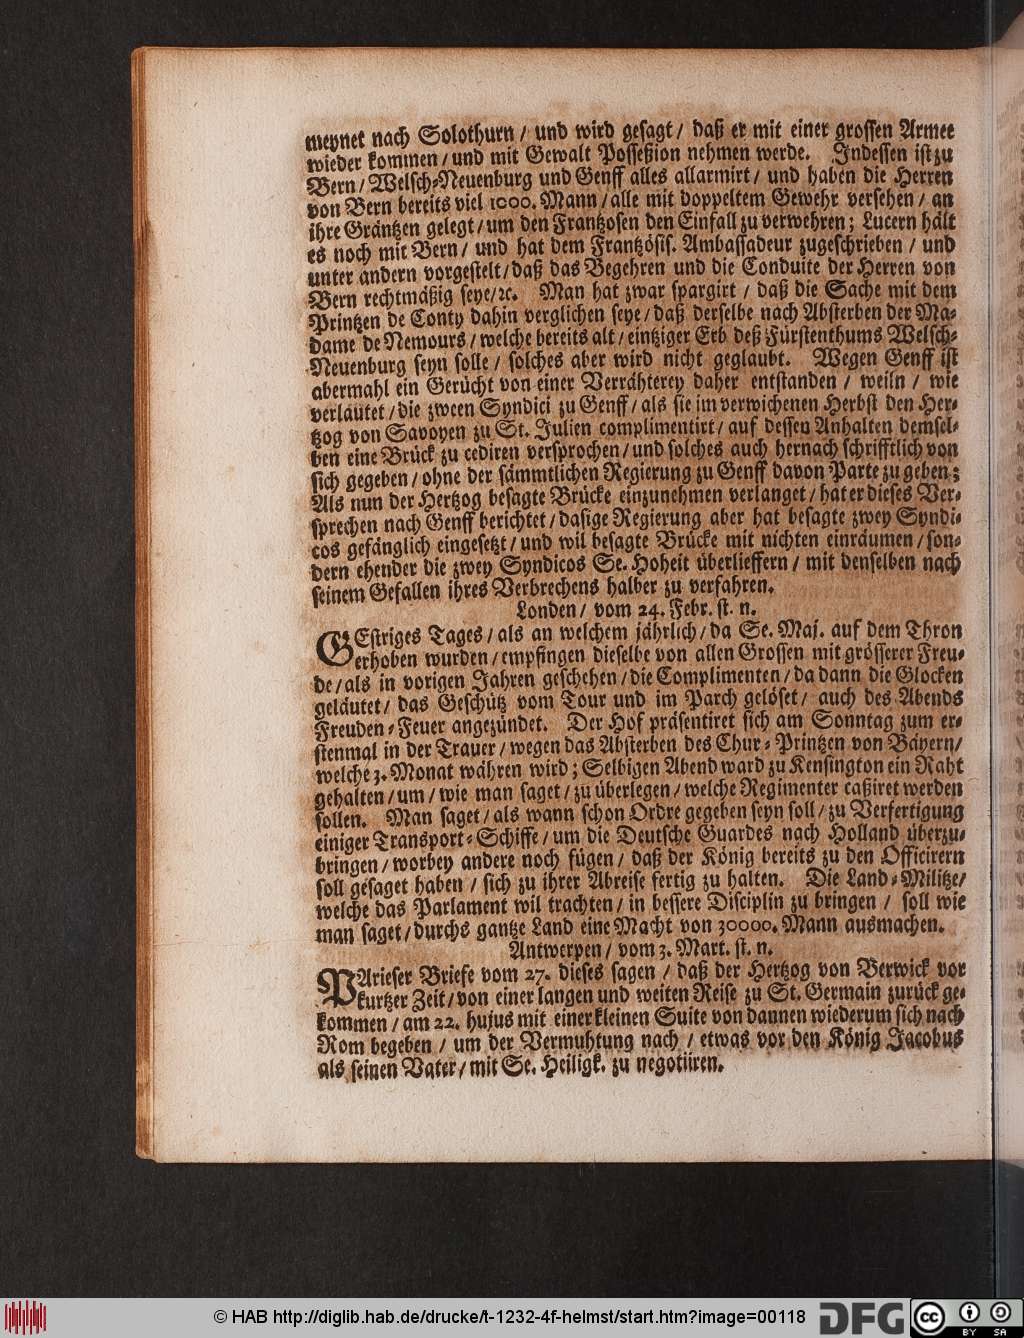 meynet nach Solothurn / und wird gesagt / daß er mit einer grossen Armee
wieder kommen / und mit Gewalt Posseßion nehmen werde. Indessen ist zu
Bern / Welsch-Neuenburg und Genff alles allarmirt / und haben die Herren
von Bern bereits viel 1000. Mann / alle mit doppeltem Gewehr versehen / an
ihre Gräntzen gelegt / um den Frantzosen den Einfall zu verwehren; Lucern hält
es noch mit Bern / und hat dem Frantzösis. Ambassadeur zugeschrieben / und
unter andern vorgestelt / daß das Begehren und die Conduite der Herren von
Bern rechtmäßig seye / ꝛc. Man hat zwar spargirt / daß die Sache mit dem
Printzen de Conty dahin verglichen seye / daß derselbe nach Absterben der Ma-
dame de Nemours / welche bereits alt / eintziger Erb deß Fürstenthums Welsch-
Neuenburg seyn solle / solches aber wird nicht geglaubt. Wegen Genff ist
abermahl ein Gerücht von einer Verrähterey daher entstanden / weiln / wie
verlautet / die zween Syndici zu Genff / als sie im verwichenen Herbst den Her-
tzog von Savoyen zu St. Julien complimentirt / auf dessen Anhalten demsel-
ben eine Brück zu cediren versprochen / und solches auch hernach schrifftlich von
sich gegeben / ohne der sämmtlichen Regierung zu Genff davon Parte zu geben;
Als nun der Hertzog besagte Brücke einzunehmen verlanget / hat er dieses Ver-
sprechen nach Genff berichtet / dasige Regierung aber hat besagte zwey Syndi-
cos gefänglich eingesetzt / und wil besagte Brücke mit nichten einräumen / son-
dern ehender die zwey Syndicos Se. Hoheit überlieffern / mit denselben nach
seinem Gefallen ihres Verbrechens halber zu verfahren.
Londen / vom 24. Febr. st. n.
GEstriges Tages / als an welchem jährlich / da Se. Maj. auf dem Thron
erhoben wurden / empfingen dieselbe von allen Grossen mit grösserer Freu-
de / als in vorigen Jahren geschehen / die Complimenten / da dann die Glocken
geläutet / das Geschütz vom Tour und im Parch gelöset / auch des Abends
Freuden-Feuer angezündet. Der Hof präsentiret sich am Sonntag zum er-
stenmal in der Trauer / wegen das Absterben des Chur-Printzen von Bäyern /
welche 3. Monat währen wird; Selbigen Abend ward zu Kensington ein Raht
gehalten / um / wie man saget / zu überlegen / welche Regimenter caßiret werden
sollen. Man saget / als wann schon Ordre gegeben seyn soll / zu Verfertigung
einiger Transport-Schiffe / um die Deutsche Guardes nach Holland überzu-
bringen / worbey andere noch fügen / daß der König bereits zu den Officirern
soll gesaget haben / sich zu ihrer Abreise fertig zu halten. Die Land-Militze /
welche das Parlament wil trachten / in bessere Disciplin zu bringen / soll wie
man saget / durchs gantze Land eine Macht von 30000. Mann ausmachen.
Antwerpen / vom 3. Mart. st. n.
PArieser Briefe vom 27. dieses sagen / daß der Hertzog von Berwick vor
kurtzer Zeit / von einer langen und weiten Reise zu St. Germain zurück ge-
kommen / am 22. hujus mit einer kleinen Suite von dannen wiederum sich nach
Rom begeben / um der Vermuhtung nach / etwas vor den König Jacobus
als seinen Vater / mit Se. Heiligk. zu negotiiren.
© HAB http://diglib.hab.de/drucke/t-1232-4f-helmst/start.htm?image=00118
DFG
cc
BY SA